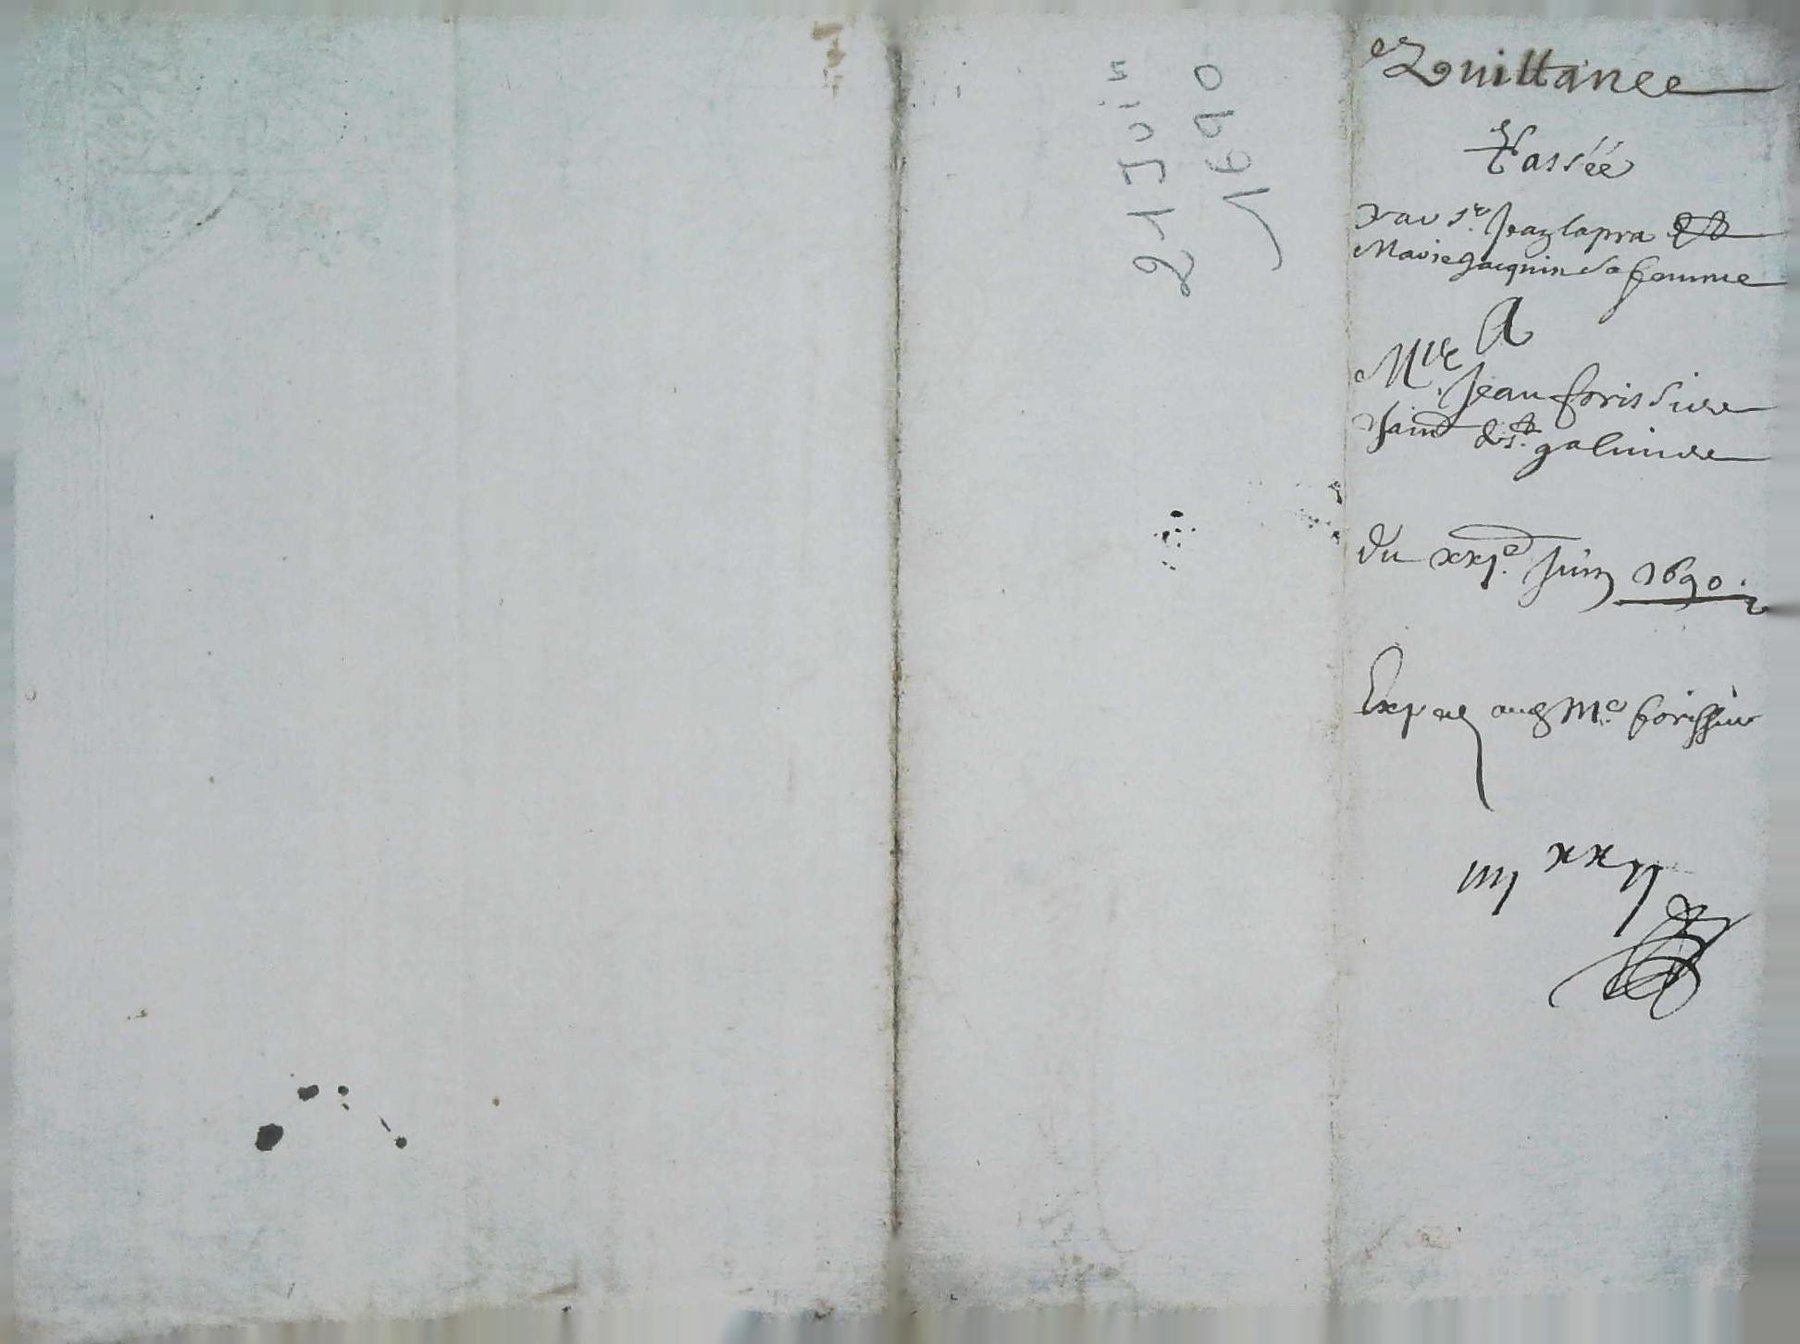 21 Juin
1690
Quittance
Passéé
par Sr. Jean lapra &
Marie Jacquin sa femme
A
Mre Jean forissier
de St. galmier
du xxje. Juin 1690.
Exped Me. forissier
iiij xx ij